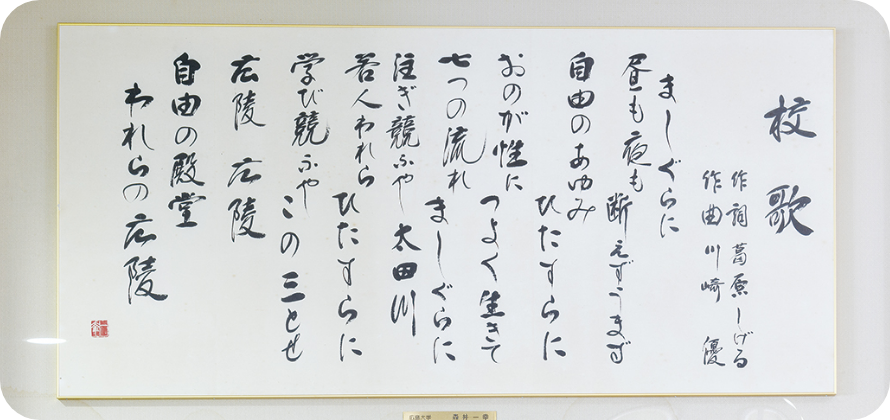 校歌
作詞 葛原しげる
作曲 川崎 優
ましぐらに
昼も夜も 断えずうまず
自由のあゆみ ひたすらに
おのが性に つよく生きて
七つの流れ ましぐらに
注ぎ競ふや 太田川
若人われら ひたすらに
学び競ふや この三とせ
広陵 広陵
自由の殿堂
われらの広陵
広島大学 森井一幸